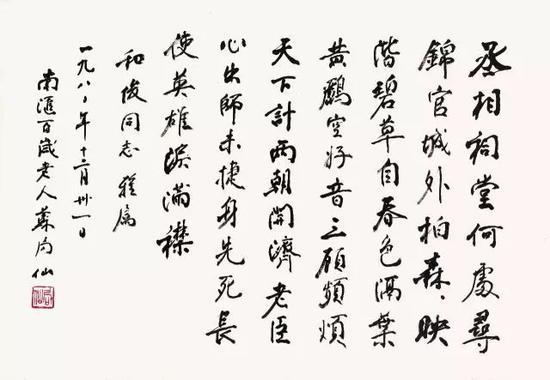 丞相祠堂何處尋
錦官城外柏森、映
階碧草自春色隔葉
黄鸝空好音三顧頻煩
天下計兩朝開濟老臣
心出師未捷身先死長
使英雄淚滿襟
和俊同志雅属
一九八〇年十二月卅一日
南滙百歲老人蘇局仙